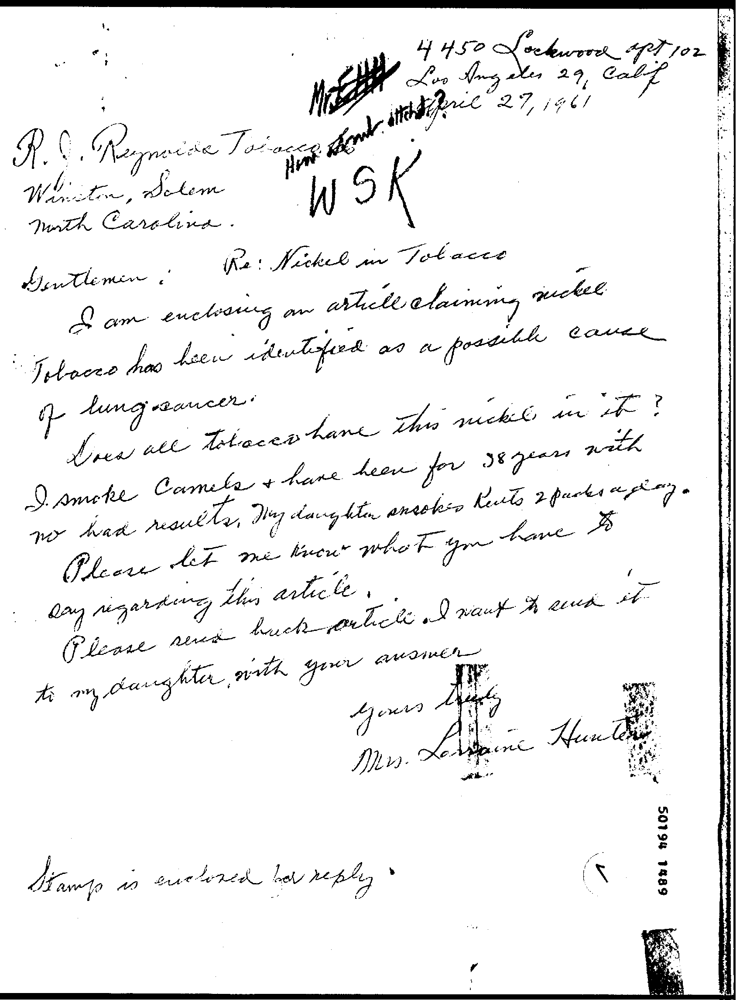 4450 Lockwood apt 102
Los Angeles 29, Calif
April 27, 1961
R. J. Reynolds Tobacco Co
Winston, Salem
North Carolina.
WSK
Gentlemen: Re: Nickel in Tobacco
I am enclosing an article claiming nickel
Tobacco has been identified as a possible cause
of lung cancer.
Does all tobacco have this nickel in it?
I smoke Camels & have been for 38 years with
no bad results. My daughter smokes Kents 2 packs a day.
Please let me know what you have to
say regarding this article.
Please send back article. I want to send it
to my daughter, with your answer
Yours truly
Mrs. Lorraine Hunter
50194 1489
Stamp is enclosed for reply.